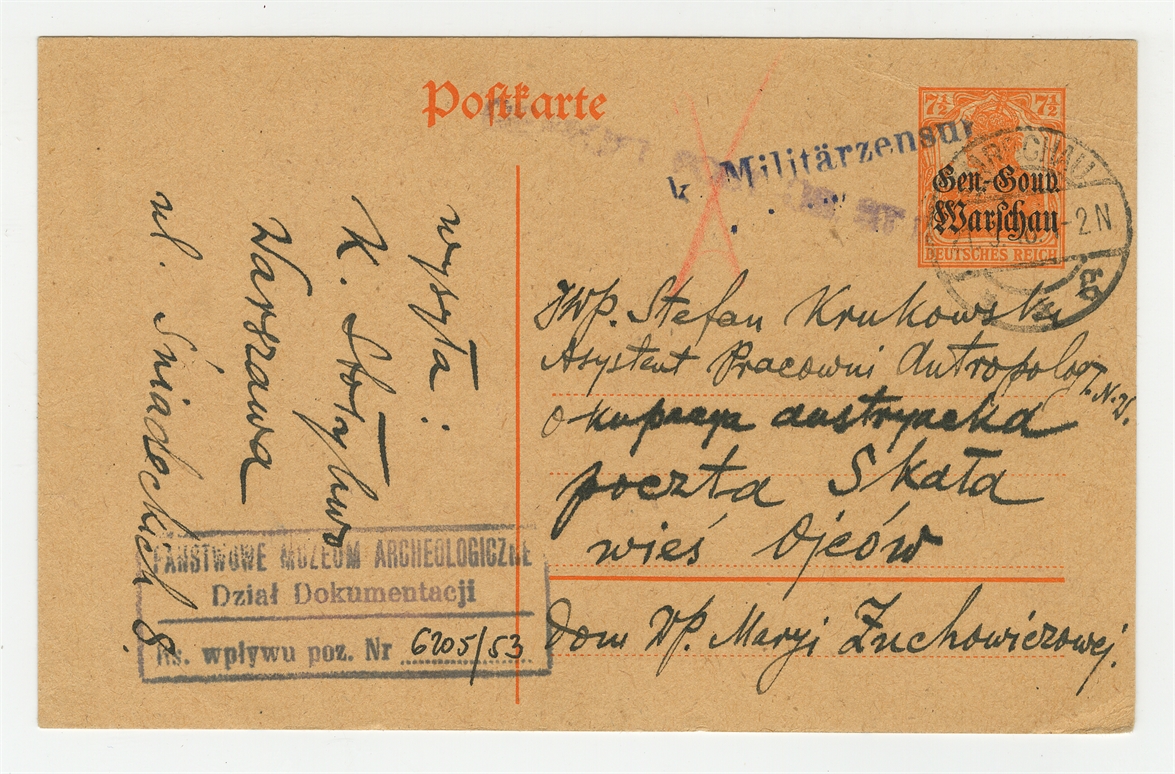 Postkarte
Militärzensur
7½ 7½
Gen.-Gouv.
Warschau
DEUTSCHES REICH
WARSCHAU
-2N
JWp. Stefan Krukowski
Asystent Pracowni Antropolog. T.N.W.
okupacja austryacka
poczta Skała
wieś Ojców
Dom WP. Maryi Żuchowiczowej.
wysyła:
K. Stołyhwo
Warszawa
ul. Śniadeckich 8
PAŃSTWOWE MUZEUM ARCHEOLOGICZNE
Dział Dokumentacji
Ks. wpływu poz. Nr 6205/53